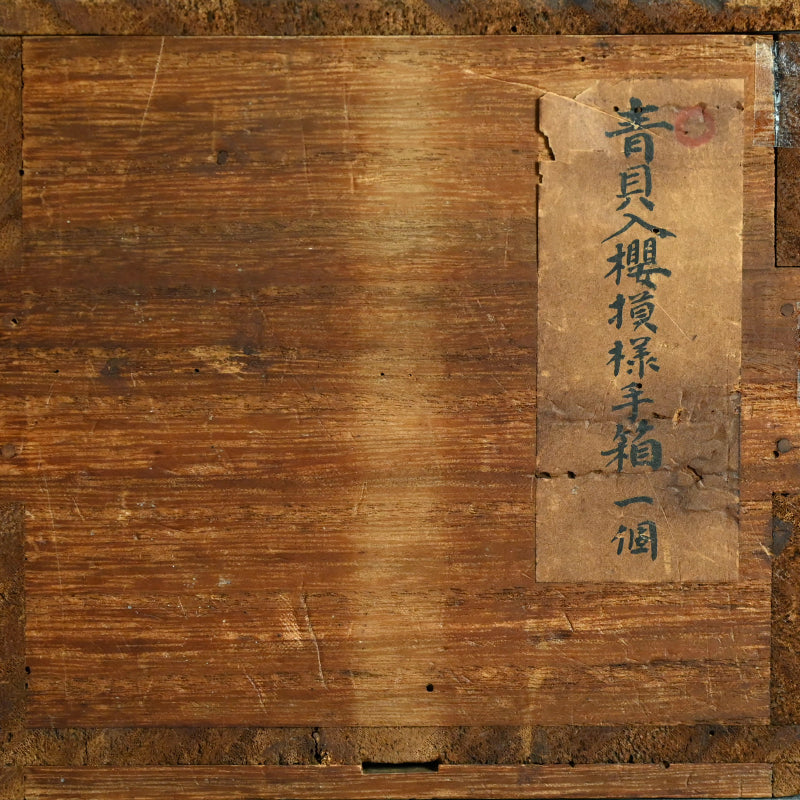 青貝入櫻損様手箱一個